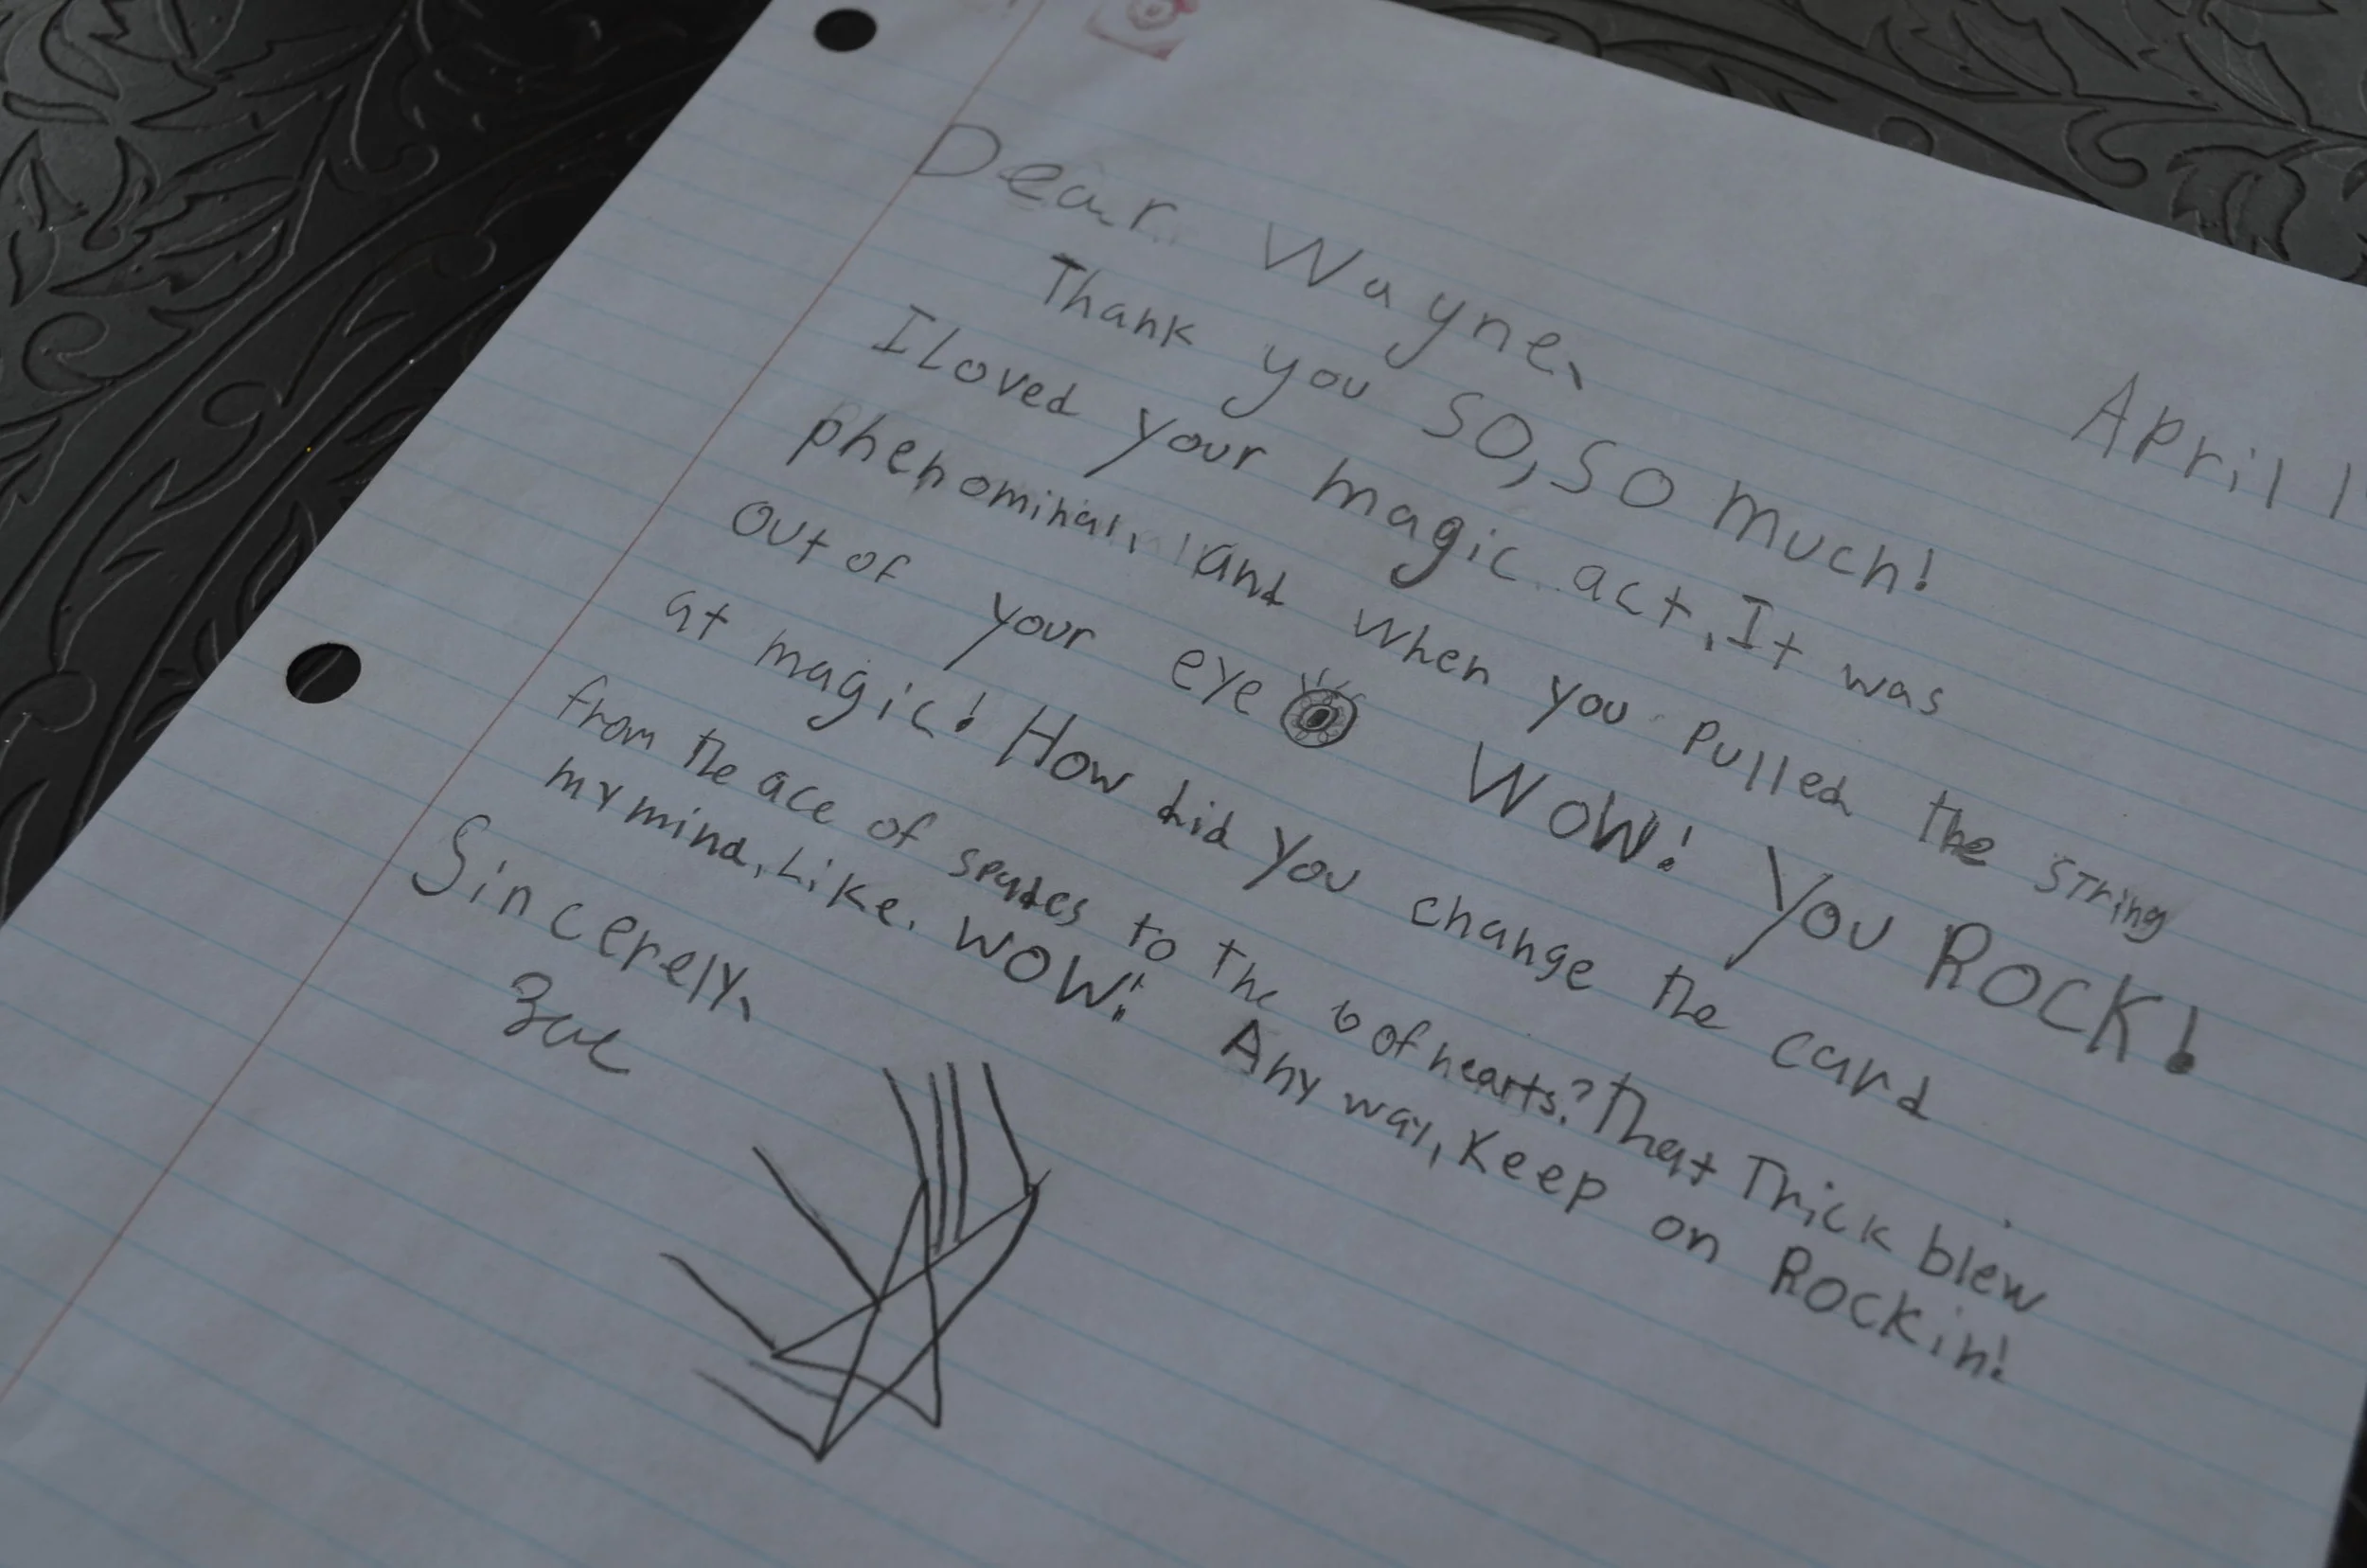 April 1
Dear Wayne,
Thank you SO, SO Much!
I Loved your magic act, It was
phenominal, and when you pulled the string
out of your eye WOW! You ROCK!
at magic! How did you change the card
from the ace of spades to the 6 of hearts? That Trick blew
my mind, Like, WOW! Any way, Keep on ROCKin!
Sincerely,
Zac